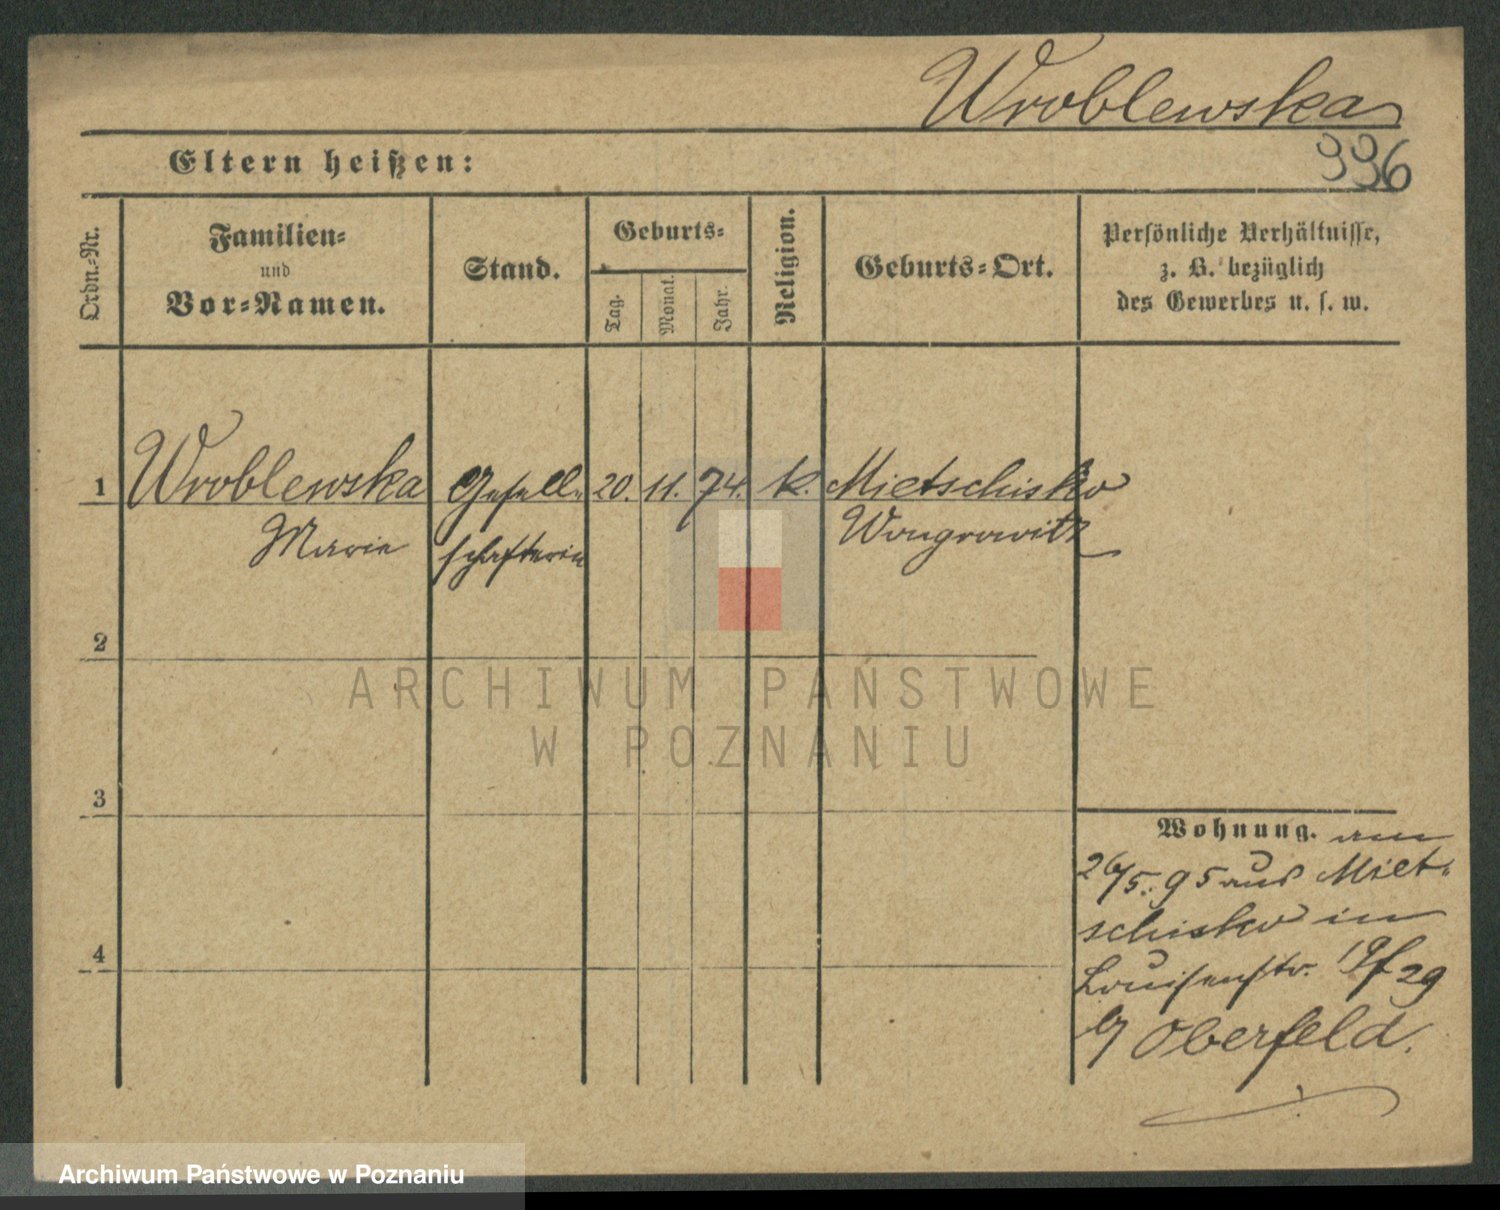 Wroblewska
996
Eltern heißen:
Ordn.-Nr.
Familien-
und
Vor-Namen.
Stand.
Geburts-
Tag.
Monat.
Jahr.
Religion.
Geburts-Ort.
Persönliche Verhältnisse,
z. B. bezüglich
des Gewerbes u. s. w.
1 Wroblewska Gesell- 20. 11. 74. k. Mietschisko
Marie schafterin Wongrowitz
2
3
4
Wohnung. am
26/5. 95 aus Miet-
schisko in
Louisenstr. 29
b/ Oberfeld.
ARCHIWUM PAŃSTWOWE
W POZNANIU
Archiwum Państwowe w Poznaniu